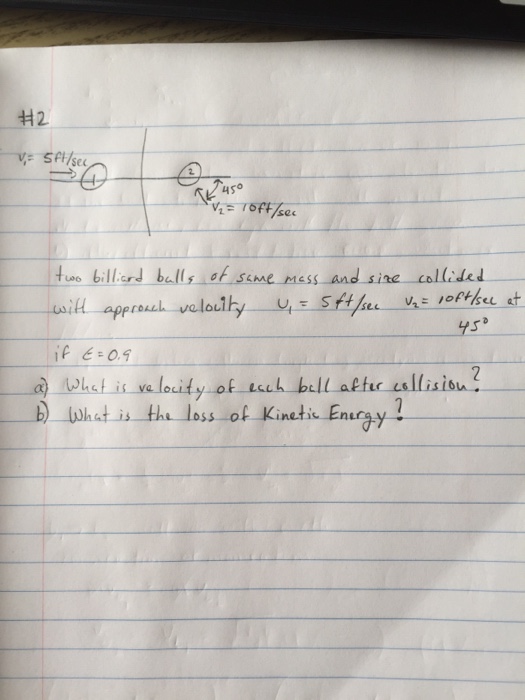 #2
V₁= 5ft/sec
1
2
45°
V₂ = 10ft/sec
two billiard balls of same mass and size collided
with approach velocity υ₁ = 5ft/sec V₂= 10ft/sec at
45°
if ϵ=0.9
a) What is velocity of each ball after collision?
b) What is the loss of Kinetic Energy?